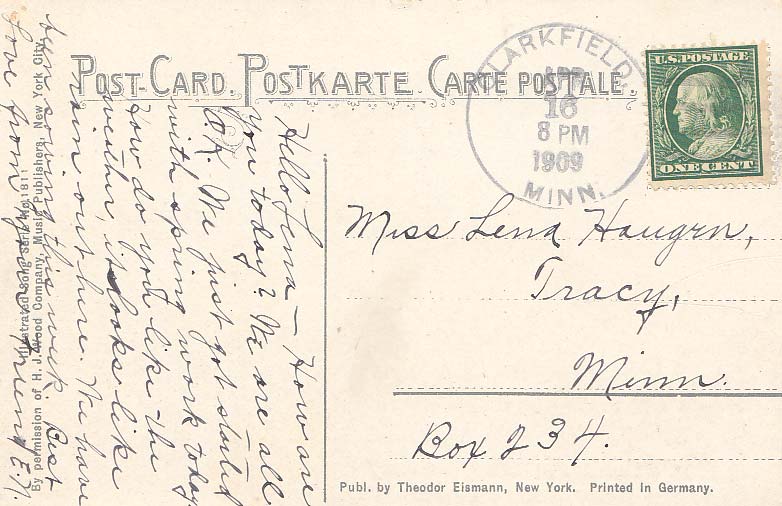 POST-CARD. POSTKARTE. CARTE POSTALE.
CLARKFIELD,
APR
16
8 PM
1909
MINN.
U.S. POSTAGE
ONE CENT
Hello Lena — How are
you today? We are all
O.K. We just got started
with spring work today.
How do you like the
weather, it looks like
rain out here. We have
been sewing this week. Best
love from your Friend E.N.
Miss Lena Haugrn,
Tracy,
Minn.
Box 234.
Illustrated Song Serie No. 1811
By permission of H. J. Wood Company, Music Publishers, New York City.
Publ. by Theodor Eismann, New York. Printed in Germany.